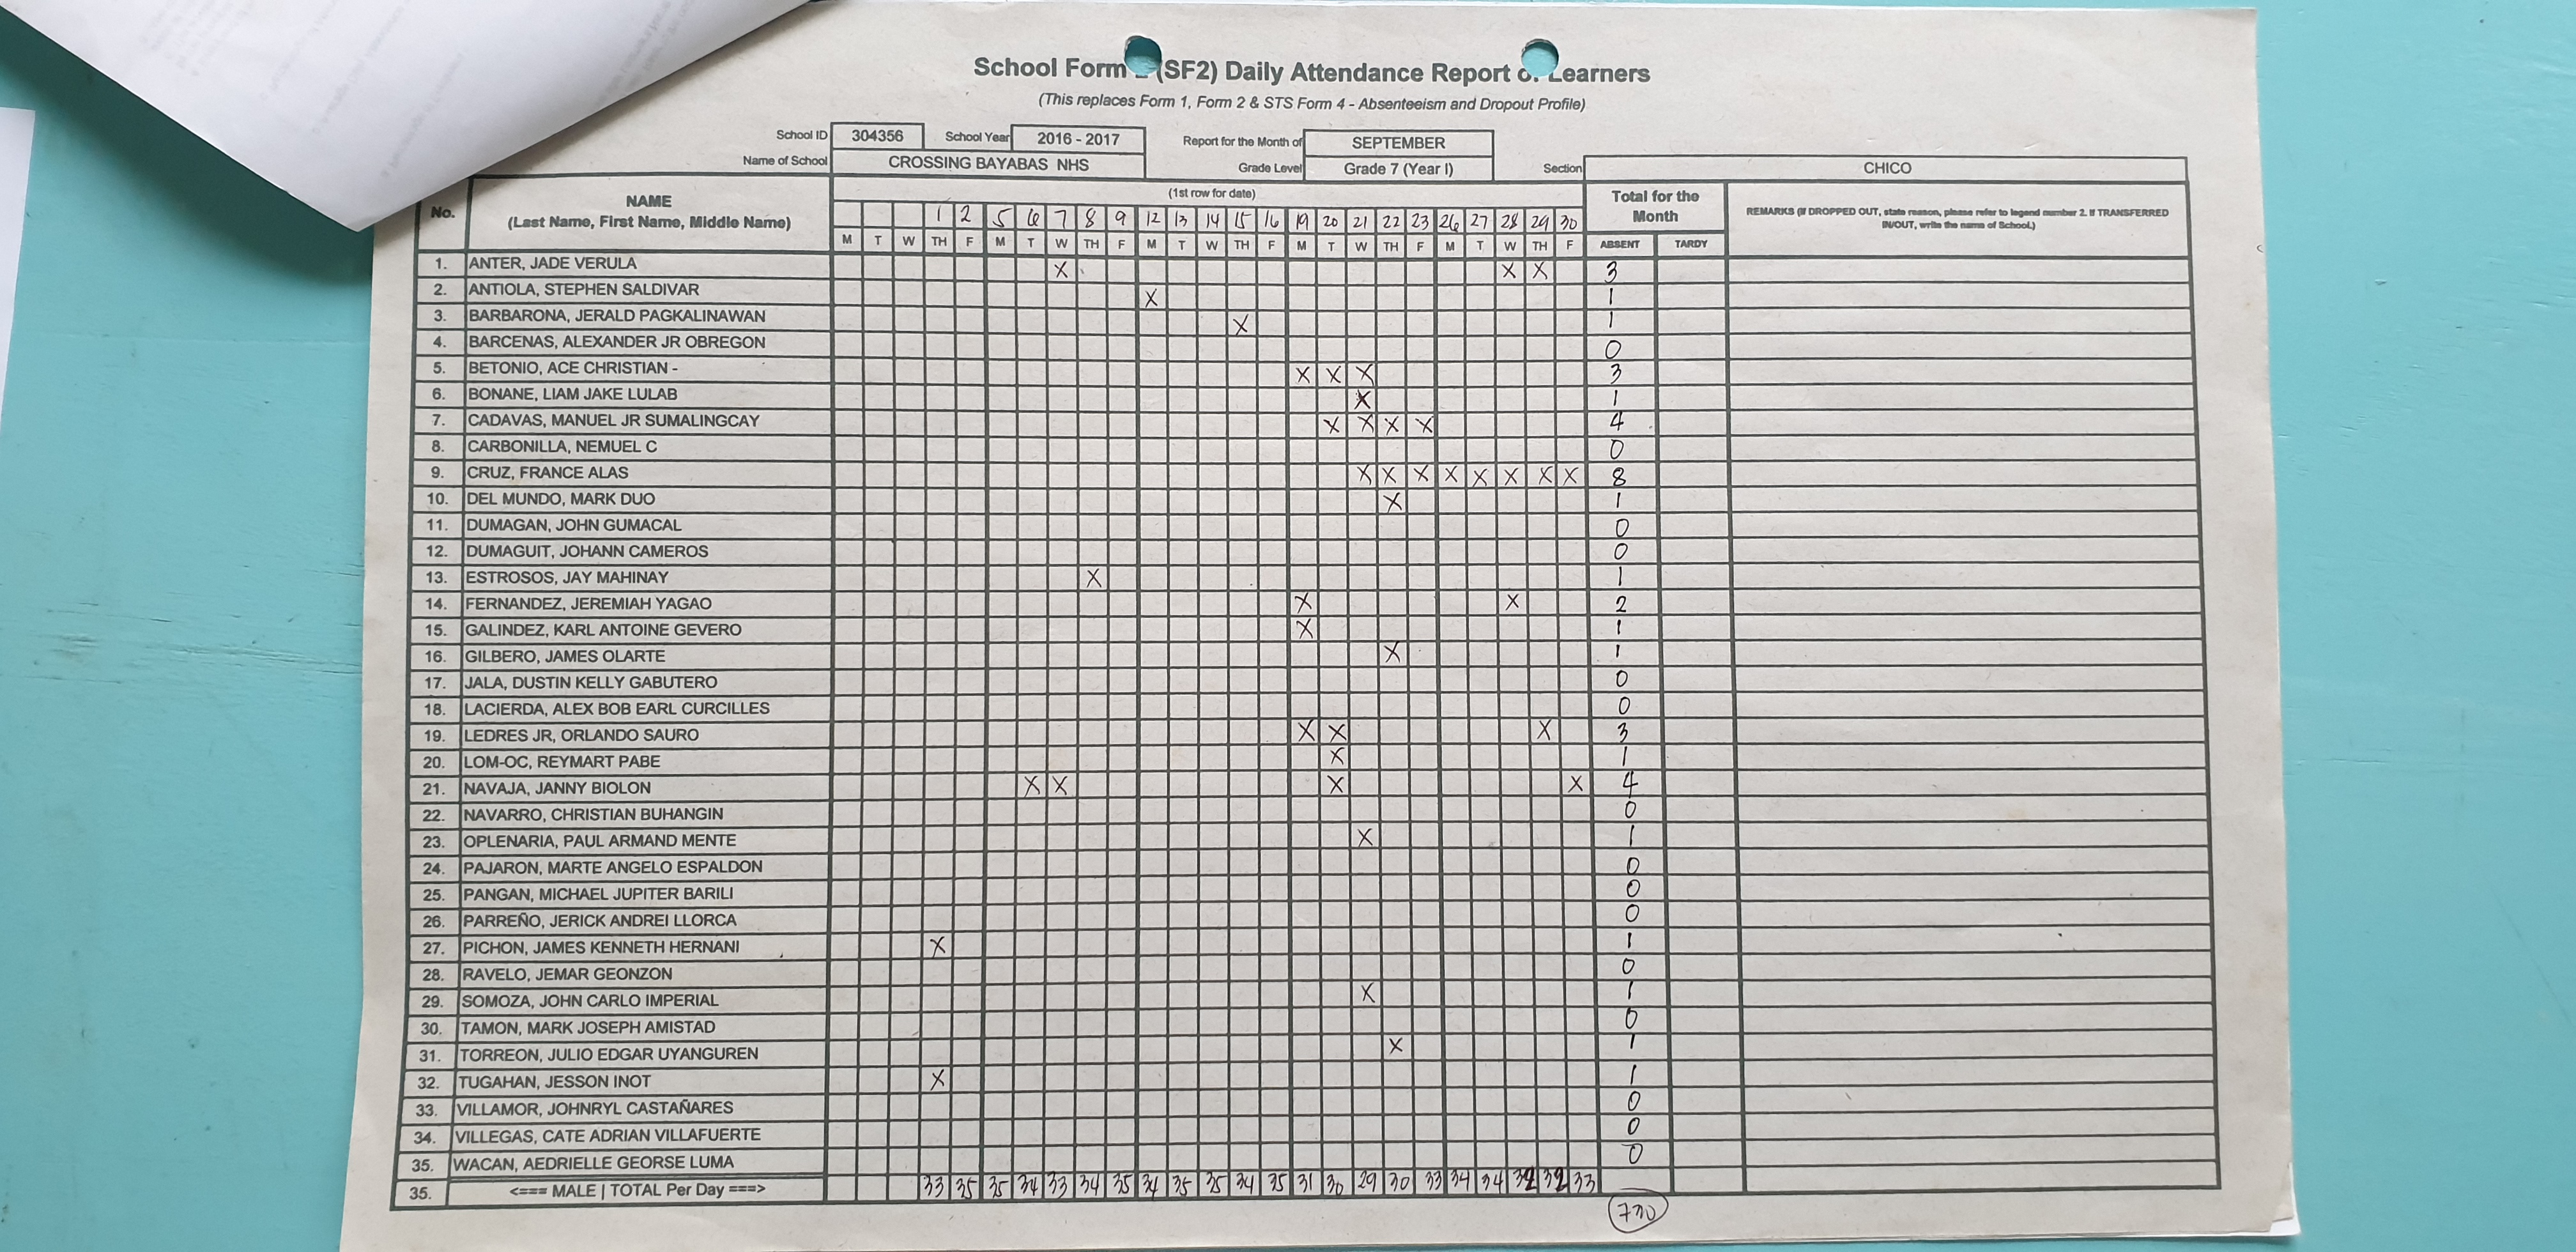 School Form (SF2) Daily Attendance Report of Learners
(This replaces Form 1, Form 2 & STS Form 4 - Absenteeism and Dropout Profile)
School ID 304356 School Year 2016 - 2017 Report for the Month of SEPTEMBER
Name of School CROSSING BAYABAS NHS Grade Level Grade 7 (Year I) Section CHICO
No. NAME (1st row for date) Total for the Month REMARKS (If DROPPED OUT, state reason, please refer to legend number 2. If TRANSFERRED IN/OUT, write the name of School.)
(Last Name, First Name, Middle Name) 1 2 5 6 7 8 9 12 13 14 15 16 19 20 21 22 23 26 27 28 29 30
M T W TH F M T W TH F M T W TH F M T W TH F M T W TH F ABSENT TARDY
1. ANTER, JADE VERULA X X X 3
2. ANTIOLA, STEPHEN SALDIVAR X 1
3. BARBARONA, JERALD PAGKALINAWAN X 1
4. BARCENAS, ALEXANDER JR OBREGON 0
5. BETONIO, ACE CHRISTIAN - X X X 3
6. BONANE, LIAM JAKE LULAB X 1
7. CADAVAS, MANUEL JR SUMALINGCAY X X X X 4
8. CARBONILLA, NEMUEL C 0
9. CRUZ, FRANCE ALAS X X X X X X X X 8
10. DEL MUNDO, MARK DUO X 1
11. DUMAGAN, JOHN GUMACAL 0
12. DUMAGUIT, JOHANN CAMEROS 0
13. ESTROSOS, JAY MAHINAY X 1
14. FERNANDEZ, JEREMIAH YAGAO X X 2
15. GALINDEZ, KARL ANTOINE GEVERO X 1
16. GILBERO, JAMES OLARTE X 1
17. JALA, DUSTIN KELLY GABUTERO 0
18. LACIERDA, ALEX BOB EARL CURCILLES 0
19. LEDRES JR, ORLANDO SAURO X X X 3
20. LOM-OC, REYMART PABE X 1
21. NAVAJA, JANNY BIOLON X X X X 4
22. NAVARRO, CHRISTIAN BUHANGIN 0
23. OPLENARIA, PAUL ARMAND MENTE X 1
24. PAJARON, MARTE ANGELO ESPALDON 0
25. PANGAN, MICHAEL JUPITER BARILI 0
26. PARREÑO, JERICK ANDREI LLORCA 0
27. PICHON, JAMES KENNETH HERNANI X 1
28. RAVELO, JEMAR GEONZON 0
29. SOMOZA, JOHN CARLO IMPERIAL X 1
30. TAMON, MARK JOSEPH AMISTAD 0
31. TORREON, JULIO EDGAR UYANGUREN X 1
32. TUGAHAN, JESSON INOT X 1
33. VILLAMOR, JOHNRYL CASTAÑARES 0
34. VILLEGAS, CATE ADRIAN VILLAFUERTE 0
35. WACAN, AEDRIELLE GEORSE LUMA 0
35. <=== MALE | TOTAL Per Day ===> 33 35 35 34 33 34 35 34 35 35 34 35 31 30 29 30 33 34 34 32 32 33